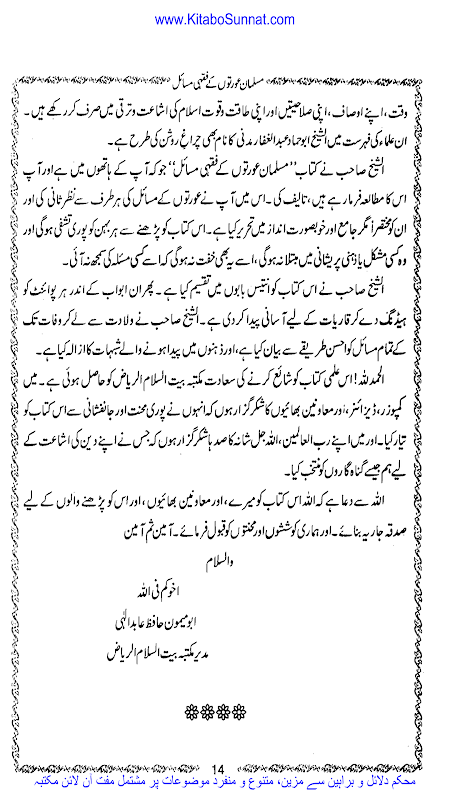 www.KitaboSunnat.com
مسلمان عورتوں کے فقہی مسائل
وقت، اپنے اوصاف، اپنی صلاحیتیں اور اپنی طاقت وقوت اسلام کی اشاعت وترقی میں صرف کر رکھے ہیں۔
ان علماء کی فہرست میں الشیخ ابوحماد عبدالغفار مدنی کا نام بھی چراغ روشن کی طرح ہے۔
الشیخ صاحب نے کتاب ’’مسلمان عورتوں کے فقہی مسائل‘‘ جو کہ آپ کے ہاتھوں میں ہے اور آپ
اس کا مطالعہ فرما رہے ہیں، تالیف کی۔ اس میں آپ نے عورتوں کے مسائل کی ہر طرف سے نظر ثانی کی اور
ان کو مختصراً مگر جامع اور خوبصورت انداز میں تحریر کیا ہے۔ اس کتاب کو پڑھنے سے ہر بہن کو پوری تشفی ہوگی اور
وہ کسی مشکل یا ذہنی پریشانی میں مبتلا نہ ہوگی، اسے یہ بھی خفت نہ ہوگی کہ اسے کسی مسئلہ کی سمجھ نہ آئی۔
الشیخ صاحب نے اس کتاب کو انتیس بابوں میں تقسیم کیا ہے۔ پھر ان ابواب کے اندر ہر پوائنٹ کو
ہیڈنگ دے کر قاریات کے لیے آسانی پیدا کر دی ہے۔ الشیخ صاحب نے ولادت سے لے کر وفات تک
کے تمام مسائل کو احسن طریقے سے بیان کیا ہے، اور ذہنوں میں پیدا ہونے والے شبہات کا ازالہ کیا ہے۔
الحمدللہ! اس علمی کتاب کو شائع کرنے کی سعادت مکتبہ بیت السلام الریاض کو حاصل ہوئی ہے۔ میں
کمپوزر، ڈیزائنر، اور معاونین بھائیوں کا شکر گزار ہوں کہ انہوں نے پوری محنت اور جانفشانی سے اس کتاب کو
تیار کیا۔ اور میں اپنے رب العالمین، اللہ جل شانہ کا صدہا شکر گزار ہوں کہ جس نے اپنے دین کی اشاعت کے
لیے ہم جیسے گناہ گاروں کو منتخب کیا۔
اللہ سے دعا ہے کہ اللہ اس کتاب کو میرے، اور معاونین بھائیوں، اور اس کو پڑھنے والوں کے لیے
صدقہ جاریہ بنائے۔ اور ہماری کوششوں اور محنتوں کو قبول فرمائے۔ آمین ثم آمین
والسلام
اخوکم فی اللہ
ابو میمون حافظ عابد الٰہی
مدیر مکتبہ بیت السلام الریاض
14
محکم دلائل و براہین سے مزین، متنوع و منفرد موضوعات پر مشتمل مفت آن لائن مکتبہ